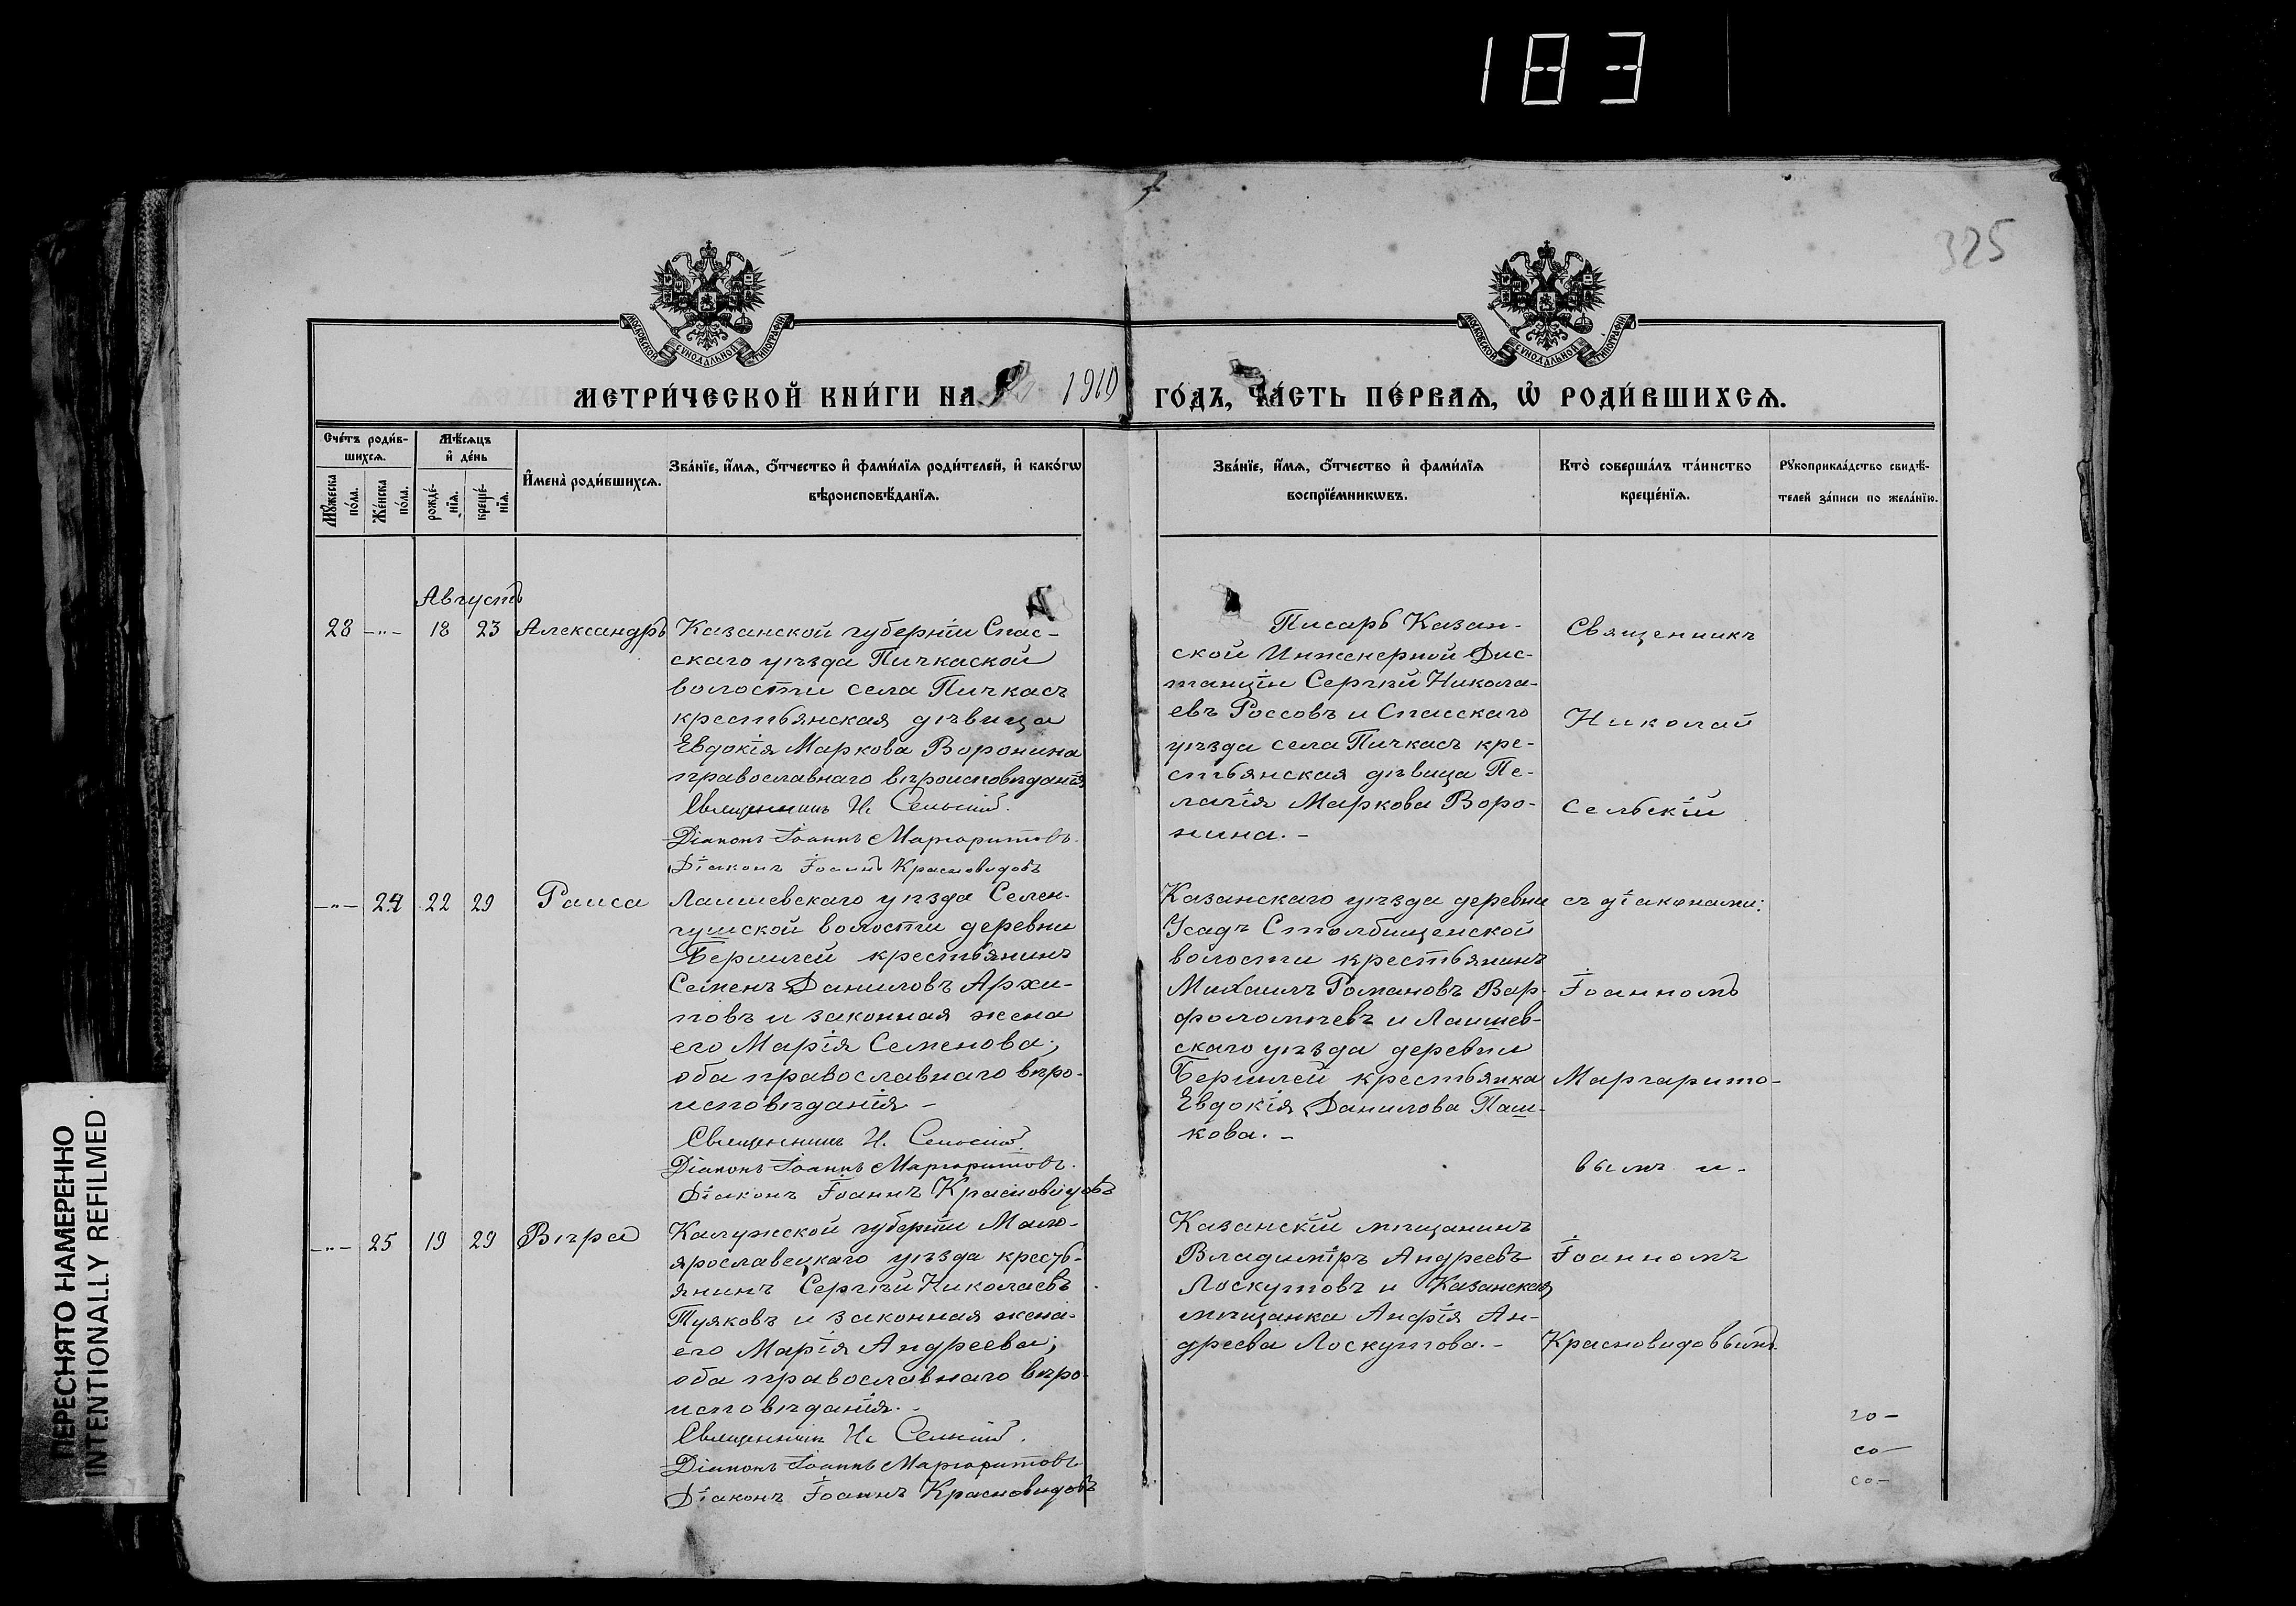 183
325
МОСКОВСКОЙ СѴНОДАЛЬНОЙ ТИПОГРАФІИ
МОСКОВСКОЙ СѴНОДАЛЬНОЙ ТИПОГРАФІИ
МЕТРИ́ЧЕСКОЙ КНИ́ГИ НА 1910 ГО́ДЪ, ЧА́СТЬ ПЕ́РВАѦ, Ѡ҆ РОДИ́ВШИХСѦ.
Сче́тъ роди́в-
шихсѧ.
Мꙋ́жеска по́ла.
Же́нска по́ла.
Мѣ́сѧцъ
и҆ де́нь
рожде́-
нїѧ.
креще́-
нїѧ.
И҆мена̀ роди́вшихсѧ.
Зва́нїе, и҆́мѧ, ѻ҆́тчество и҆ фами́лїѧ роди́телей, и҆ како́гѡ
вѣроисповѣ́данїѧ.
Зва́нїе, и҆́мѧ, ѻ҆́тчество и҆ фами́лїѧ
воспрїе́мникѡвъ.
Кто̀ соверша́лъ та́инство
креще́нїѧ.
Рꙋкоприкла́дство свидѣ́-
телей за́писи по жела́нїю.
Августъ
28 -"- 18 23 Александръ
Казанской губерніи Спас-
скаго уѣзда Пичкаской
волости села Пичкасъ
крестьянская дѣвица
Евдокія Маркова Воронина
православнаго вѣроисповѣданія
Священникъ Н. Сельскій.
Діаконъ Іоаннъ Маргаритовъ.
Діаконъ Іоаннъ Красновидовъ
Писарь Казан-
ской Инженерной Дис-
танціи Сергѣй Никола-
евъ Россовъ и Спасскаго
уѣзда села Пичкасъ кре-
стьянская дѣвица Пе-
лагія Маркова Воро-
нина. -
Священникъ
Николай
Сельскій
-"- 24 22 29 Раиса
Лаишевскаго уѣзда Селен-
гушской волости деревни
Бершлей крестьянинъ
Семенъ Даниловъ Архи-
повъ и законная жена
его Марія Семенова;
оба православнаго вѣро-
исповѣданія -
Священникъ Н. Сельскій.
Діаконъ Іоаннъ Маргаритовъ.
Діаконъ Іоаннъ Красновидовъ
Казанскаго уѣзда деревни
Усадъ Столбищенской
волости крестьянинъ
Михаилъ Романовъ Вар-
фоломѣевъ и Лаишев-
скаго уѣзда деревни
Бершлей крестьянка
Евдокія Данилова Паш-
кова. -
съ діаконами:
Іоанномъ
Маргарито-
вымъ и -
-"- 25 19 29 Вѣра
Калужской губерніи Мало-
ярославецкаго уѣзда кресть-
янинъ Сергѣй Николаевъ
Туяковъ и законная жена
его Марія Андреева;
оба православнаго вѣро-
исповѣданія. -
Священникъ Н. Сельскій.
Діаконъ Іоаннъ Маргаритовъ
Діаконъ Іоаннъ Красновидовъ
Казанскій мѣщанинъ
Владиміръ Андреевъ
Лоскутовъ и Казанская
мѣщанка Анфія Ан-
дреева Лоскутова. -
Іоанномъ
Красновидовымъ.
го -
со -
со -
ПЕРЕСНЯТО НАМЕРЕННО
INTENTIONALLY REFILMED